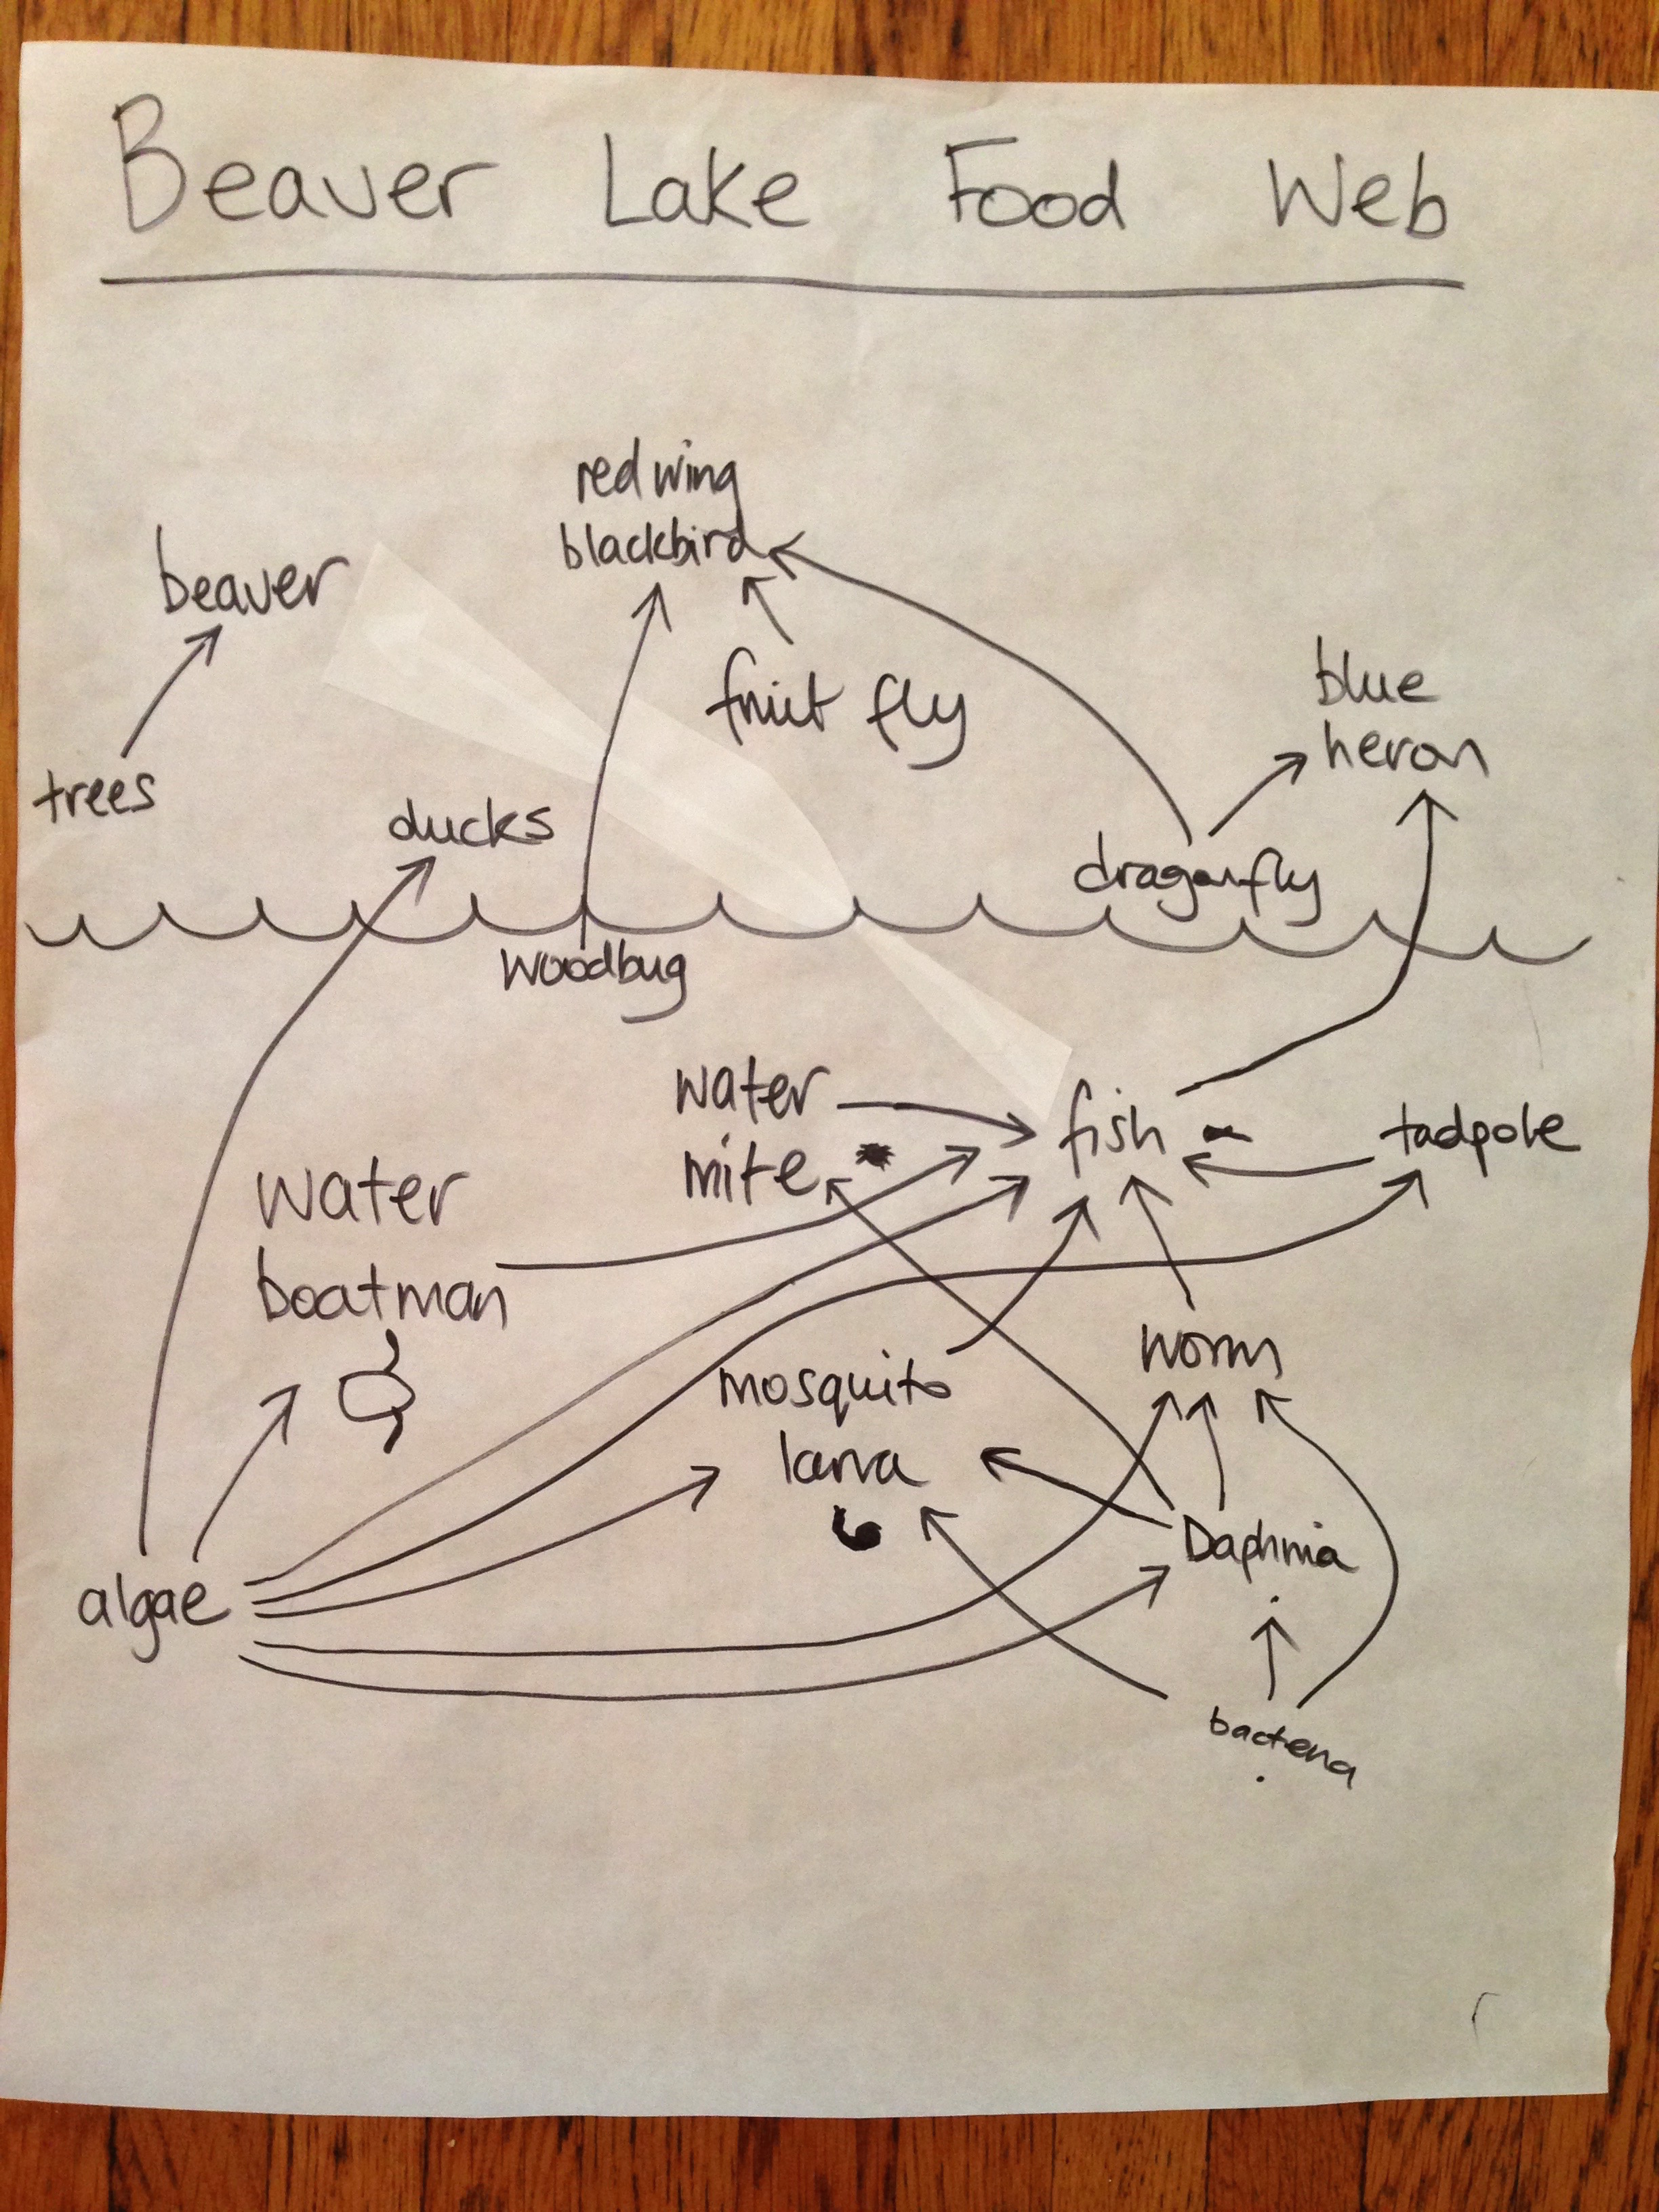 Beaver Lake Food Web
red wing
blackbird
beaver
fruit fly
blue
heron
trees
ducks
dragonfly
woodbug
water
mite
fish
tadpole
water
boatman
mosquito
larva
worm
Daphnia
algae
bacteria